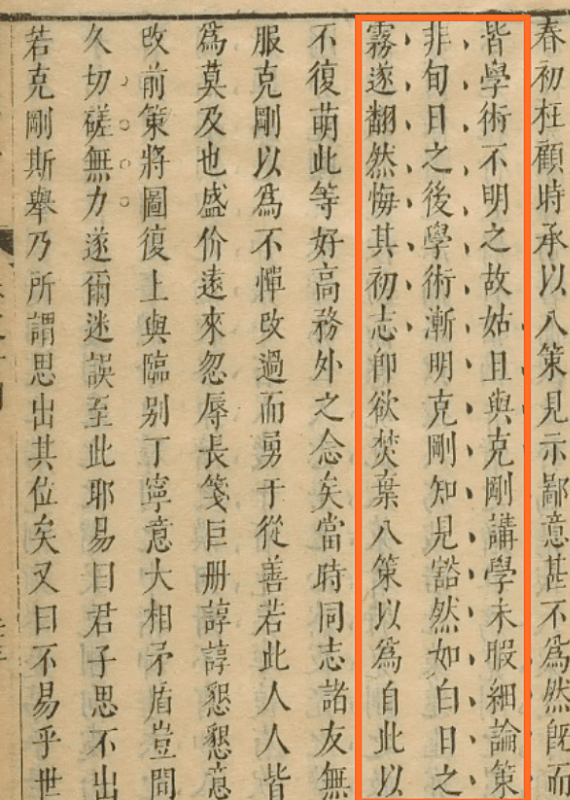 春初枉顧時承以八策見示鄙意甚不爲然旣而
皆學術不明之故姑且與克剛講學未暇細論策
非旬日之後學術漸明克剛知見豁然如白日之
霧遂翻然悔其初志卽欲焚棄八策以爲自此以
不復萌此等好高務外之念矣當時同志諸友無
服克剛以爲不憚改過而勇于從善若此人人皆
爲莫及也盛价遠來忽辱長箋巨册諄諄懇懇意
改前策將圖復上與臨别丁寧意大相矛盾豈間
久切磋無力遂爾迷誤至此耶易曰君子思不出
若克剛斯舉乃所謂思出其位矣又曰不易乎世